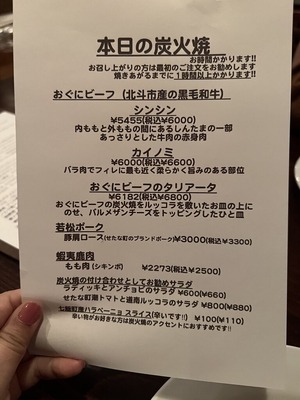 本日の炭火焼
お時間かかります!!
お召し上がりの方は最初のご注文をお勧めします
焼きあがるまでに1時間以上かかります!!
おぐにビーフ（北斗市産の黒毛和牛）
シンシン
¥5455(税込¥6000)
内ももと外ももの間にあるしんたまの一部
あっさりとした牛肉の赤身肉
カイノミ
¥6000(税込¥6600)
バラ肉でフィレに最も近く柔らかく旨みのある部位
おぐにビーフのタリアータ
¥6182(税込¥6800)
おぐにビーフの炭火焼をルッコラを敷いたお皿の上に
のせ、パルメザンチーズをトッピングしたひと皿
若松ポーク
豚肩ロース(せたな町のブランドポーク)¥3000(税込¥3300)
蝦夷鹿肉
もも肉(シキンボ) ¥2273(税込¥2500)
炭火焼の付け合わせとしてお勧めサラダ
ラディッキとアンチョビのサラダ ¥600(¥660)
せたな町産トマトと道南ルッコラのサラダ ¥800(¥880)
七飯町産ハラペーニョ スライス(辛いです!!) ¥100(¥110)
辛い物がお好きな方は炭火焼のアクセントにおすすめです!!